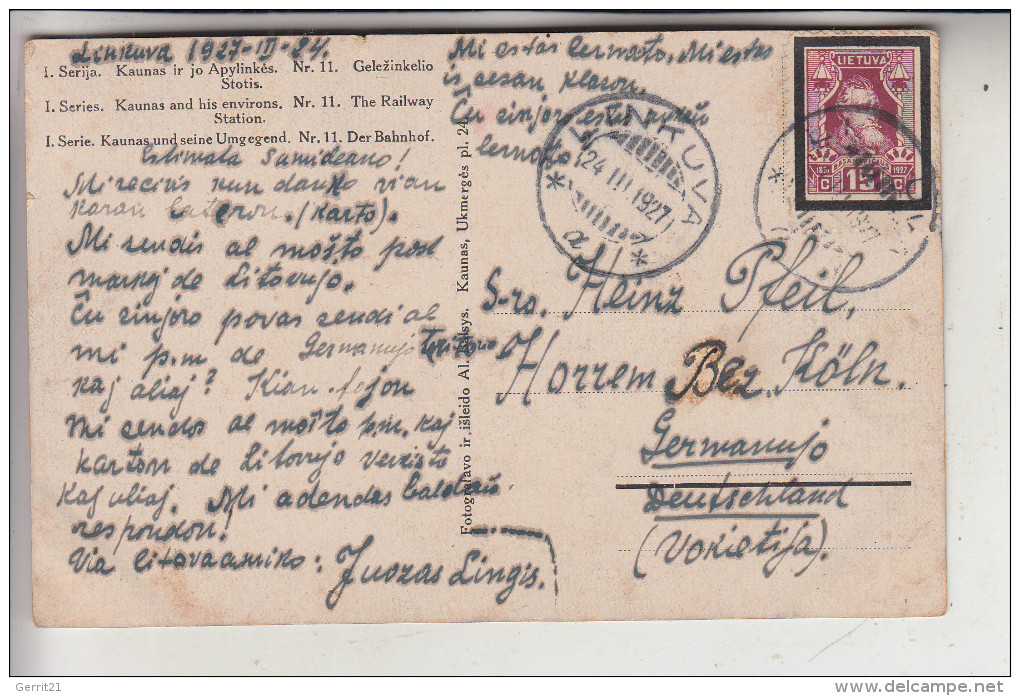 Linkuva 1927-III-24.
I. Serija. Kaunas ir jo Apylinkės. Nr. 11. Geležinkelio
Stotis.
I. Series. Kaunas and his environs. Nr. 11. The Railway
Station.
I. Serie. Kaunas und seine Umgegend. Nr. 11. Der Bahnhof.
Estimata Samideano!
Mi recivis kun danko vian
karan leteron. (Karto).
Mi sendis al mošto post
markoj de Litovujo.
Ĉu sinjoro povas sendi al
mi p.m. de Germanujo
kaj aliaj? Kian fojon
mi sendos al mošto p.m. kaj
karton de Litovujo
kaj aliaj. Mi adendas baldaŭ
respondon!
Via litova amiko: Juozas Lingis.
Mi estas lernanto. Mi estas
klason.
Ĉu sinjoro estas
lernanto
Fotografavo ir išleido Al. Kaunas, Ukmergės pl. 24.
LINKUVA
24 III 1927
LIETUVA
1851 1927
15
C C
S-ro. Heinz Pfeil,
Horrem Bez. Köln.
Germanujo
Deutschland
(Vokietija).
Gerrit21